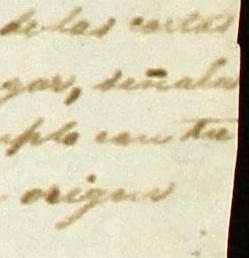 de las costas
gar, señala
mplo con tra
origen